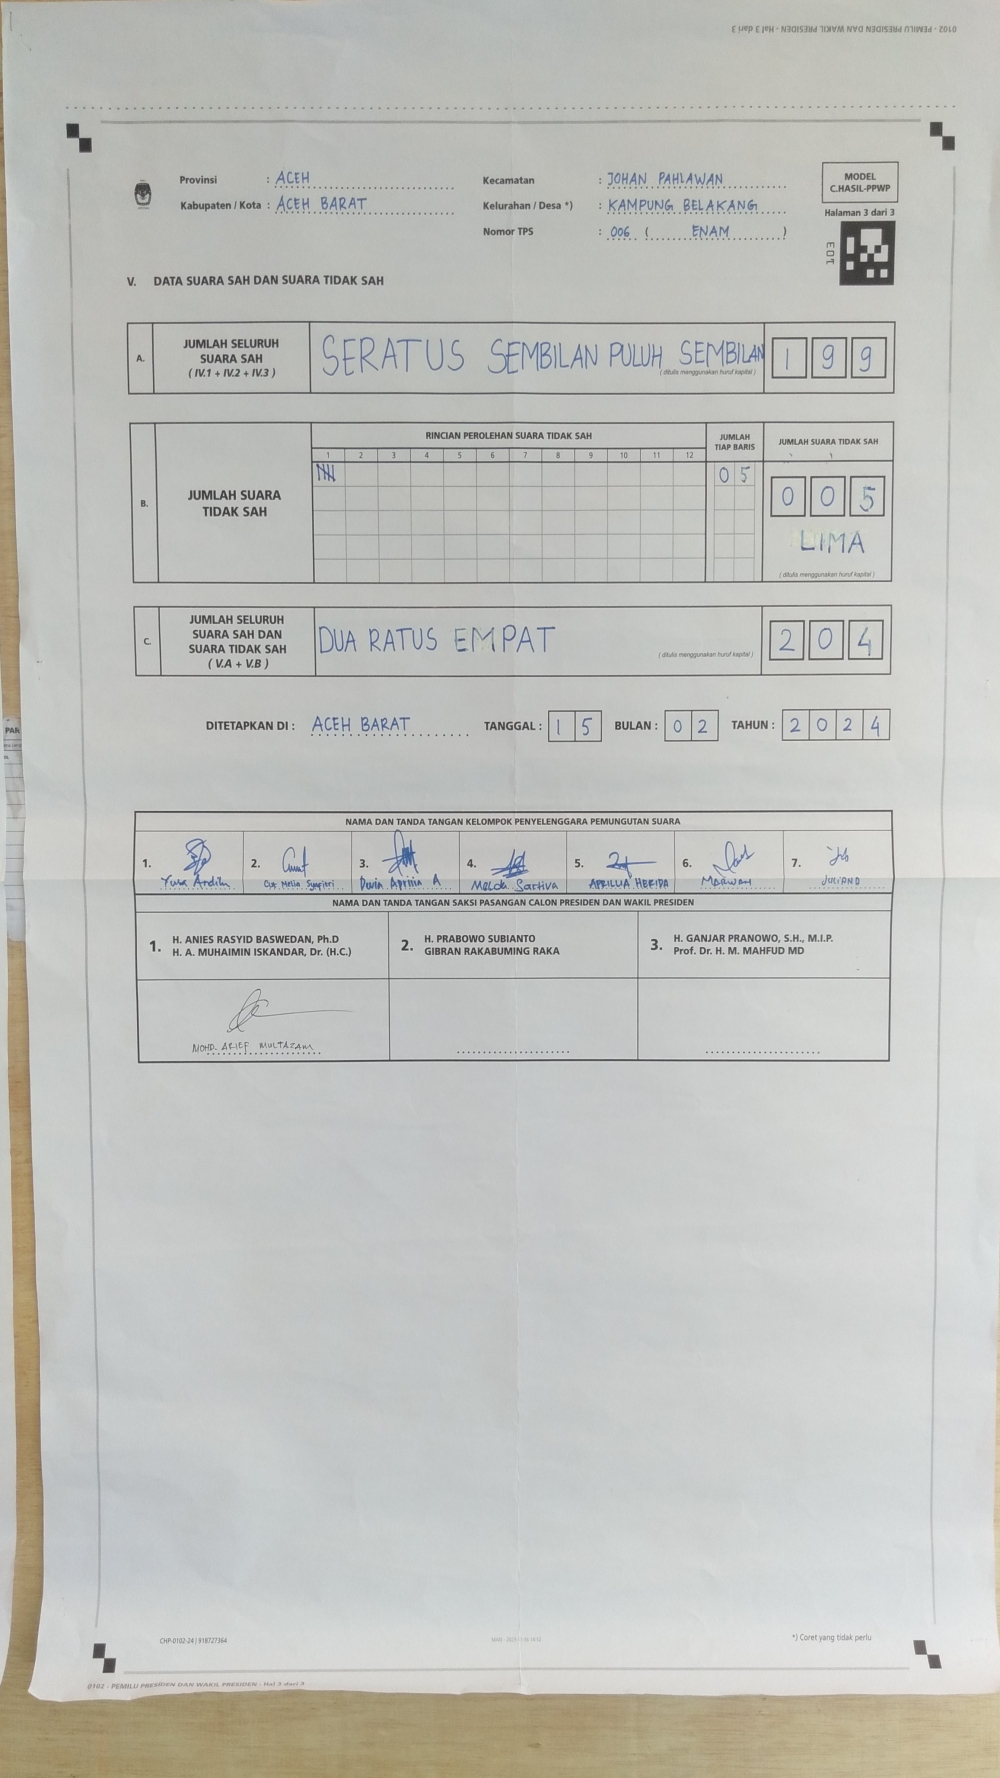 0102 - PEMILU PRESIDEN DAN WAKIL PRESIDEN - Hal 3 dari 3
Provinsi : ACEH
Kabupaten / Kota : ACEH BARAT
Kecamatan : JOHAN PAHLAWAN
Kelurahan / Desa *) : KAMPUNG BELAKANG
Nomor TPS : 006 ( ENAM )
MODEL
C.HASIL-PPWP
Halaman 3 dari 3
V. DATA SUARA SAH DAN SUARA TIDAK SAH
A. JUMLAH SELURUH
SUARA SAH
( IV.1 + IV.2 + IV.3 )
SERATUS SEMBILAN PULUH SEMBILAN 1 9 9
( ditulis menggunakan huruf kapital )
RINCIAN PEROLEHAN SUARA TIDAK SAH
JUMLAH
TIAP BARIS
JUMLAH SUARA TIDAK SAH
1 2 3 4 5 6 7 8 9 10 11 12
B. JUMLAH SUARA
TIDAK SAH
0 5
0 0 5
LIMA
( ditulis menggunakan huruf kapital )
C. JUMLAH SELURUH
SUARA SAH DAN
SUARA TIDAK SAH
( V.A + V.B )
DUA RATUS EMPAT 2 0 4
( ditulis menggunakan huruf kapital )
DITETAPKAN DI : ACEH BARAT TANGGAL : 1 5 BULAN : 0 2 TAHUN : 2 0 2 4
NAMA DAN TANDA TANGAN KELOMPOK PENYELENGGARA PEMUNGUTAN SUARA
1. 2. 3. 4. 5. 6. 7.
Yusa Ardila Cut Melia Syafitri Devin Aprilia A Melda Sartiva APRILLIA HERIDA Marwan JULIAND
NAMA DAN TANDA TANGAN SAKSI PASANGAN CALON PRESIDEN DAN WAKIL PRESIDEN
1. H. ANIES RASYID BASWEDAN, Ph.D
H. A. MUHAIMIN ISKANDAR, Dr. (H.C.)
2. H. PRABOWO SUBIANTO
GIBRAN RAKABUMING RAKA
3. H. GANJAR PRANOWO, S.H., M.I.P.
Prof. Dr. H. M. MAHFUD MD
MOHD. ARIEF MULTAZAM
CHP-0102-24 | 918727364
*) Coret yang tidak perlu
0102 - PEMILU PRESIDEN DAN WAKIL PRESIDEN - Hal 3 dari 3